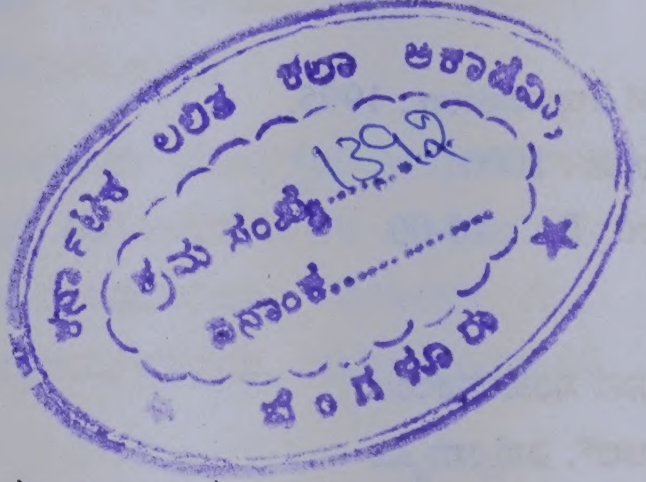 ಕರ್ನಾಟಕ ಲಲಿತ ಕಲಾ ಅಕಾಡೆಮಿ,
ಕ್ರಮ ಸಂಖ್ಯೆ.......... 1392
ದಿನಾಂಕ....................
ಬೆಂಗಳೂರು